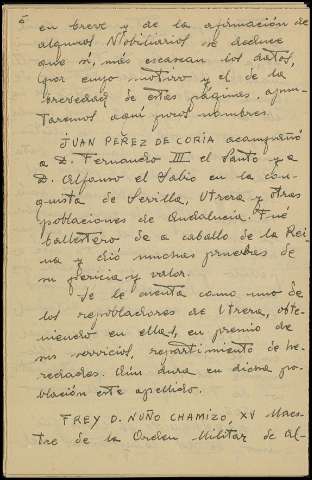 5
en breve y de la afirmación de
algunos Nobiliarios se deduce
que sí, mas escasean los datos,
por cuyo motivo y el de la
brevedad de estas páginas, apun-
taremos aquí pocos nombres.
JUAN PEREZ DE CORIA acompañó
a D. Fernando III el Santo y a
D. Alfonso el Sabio en la con-
quista de Sevilla, Utrera y otras
poblaciones de Andalucía. Fué
ballestero de a caballo de la Rei-
na y dió muchas pruebas de
su pericia y valor.
Se le cuenta como uno de
los repobladores de Utrera, obte-
niendo en ella, en premio de
sus servicios, repartimiento de he-
redades. Aún dura en dicha po-
blación este apellido.
FREY D. NUÑO CHAMIZO, XV Maes-
tre de la Orden Militar de Al-